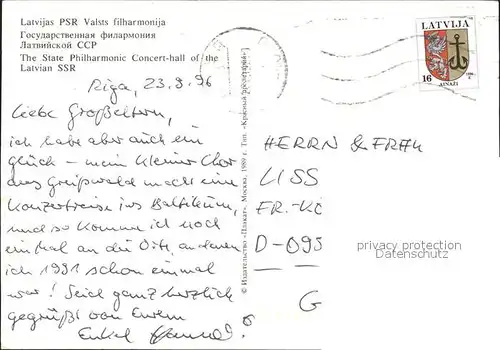 Latvijas PSR Valsts filharmonija
Государственная филармония
Латвийской ССР
The State Philharmonic Concert-hall of the
Latvian SSR
Riga, 23.9.96
Liebe Großeltern,
ich habe aber auch ein
Glück - mein kleiner Chor
aus Greifswald macht eine
Konzertreise ins Baltikum,
und so komme ich noch
einmal an die Orte, an denen
ich 1991 schon einmal
war! Seid ganz herzlich
gegrüßt von Eurem
Enkel
© Издательство «Плакат». Москва, 1989 г. Тип. «Красный пролетарий»
LATVIJA
16
1996
AINAŽI
HERRN & FRAU
LISS
FR.-KÖ
D-095
G
privacy protection
Datenschutz